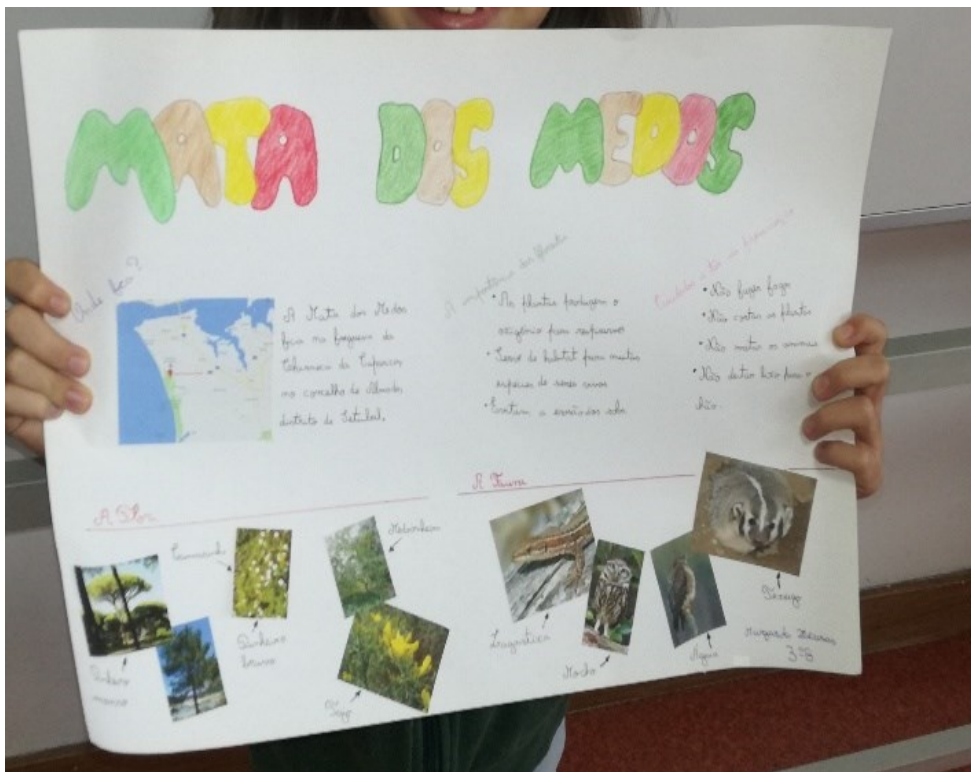 MATA DOS MEDOS
Onde fica?
A Mata dos Medos
fica na freguesia da
Charneca da Caparica
no concelho de Almada,
distrito de Setúbal.
A importância das florestas
• As plantas produzem o
oxigénio para respirarmos
• Serve de habitat para muitas
espécies de seres vivos
• Contém a erosão dos solos
Cuidados a ter na
• Não fazer fogo
• Não cortar as plantas
• Não matar os animais
• Não deitar lixo para o
chão.
A Flora
Camarinha
Medronheiro
Pinheiro
manso
Pinheiro
bravo
Tojo
A Fauna
Lagartixa
Mocho
Águia
Texugo
Margarida
3ºB